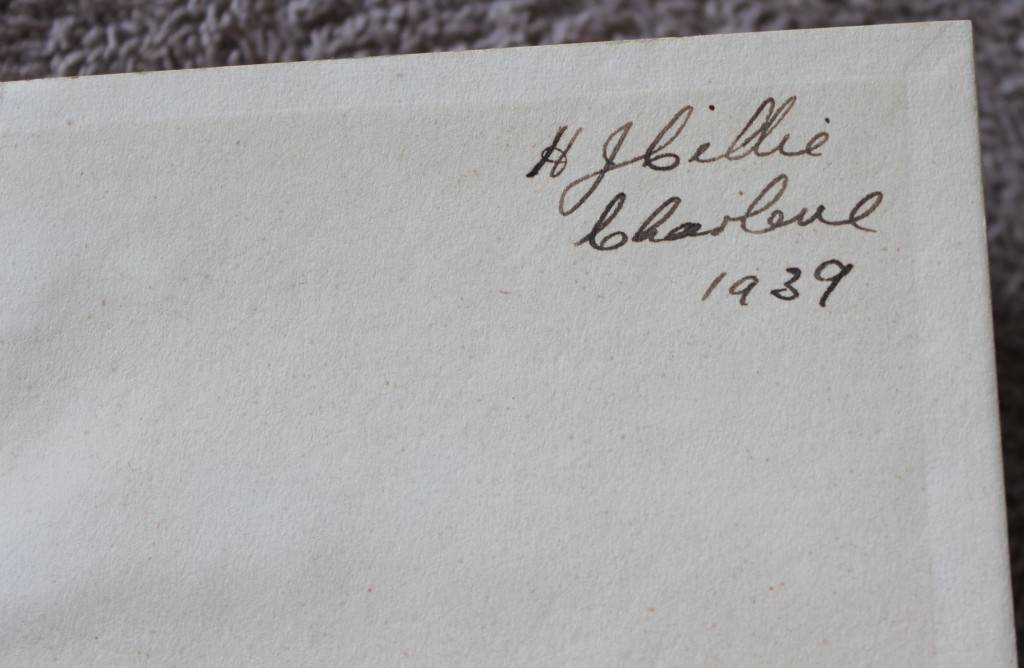 H J Cillie
Charlene
1939